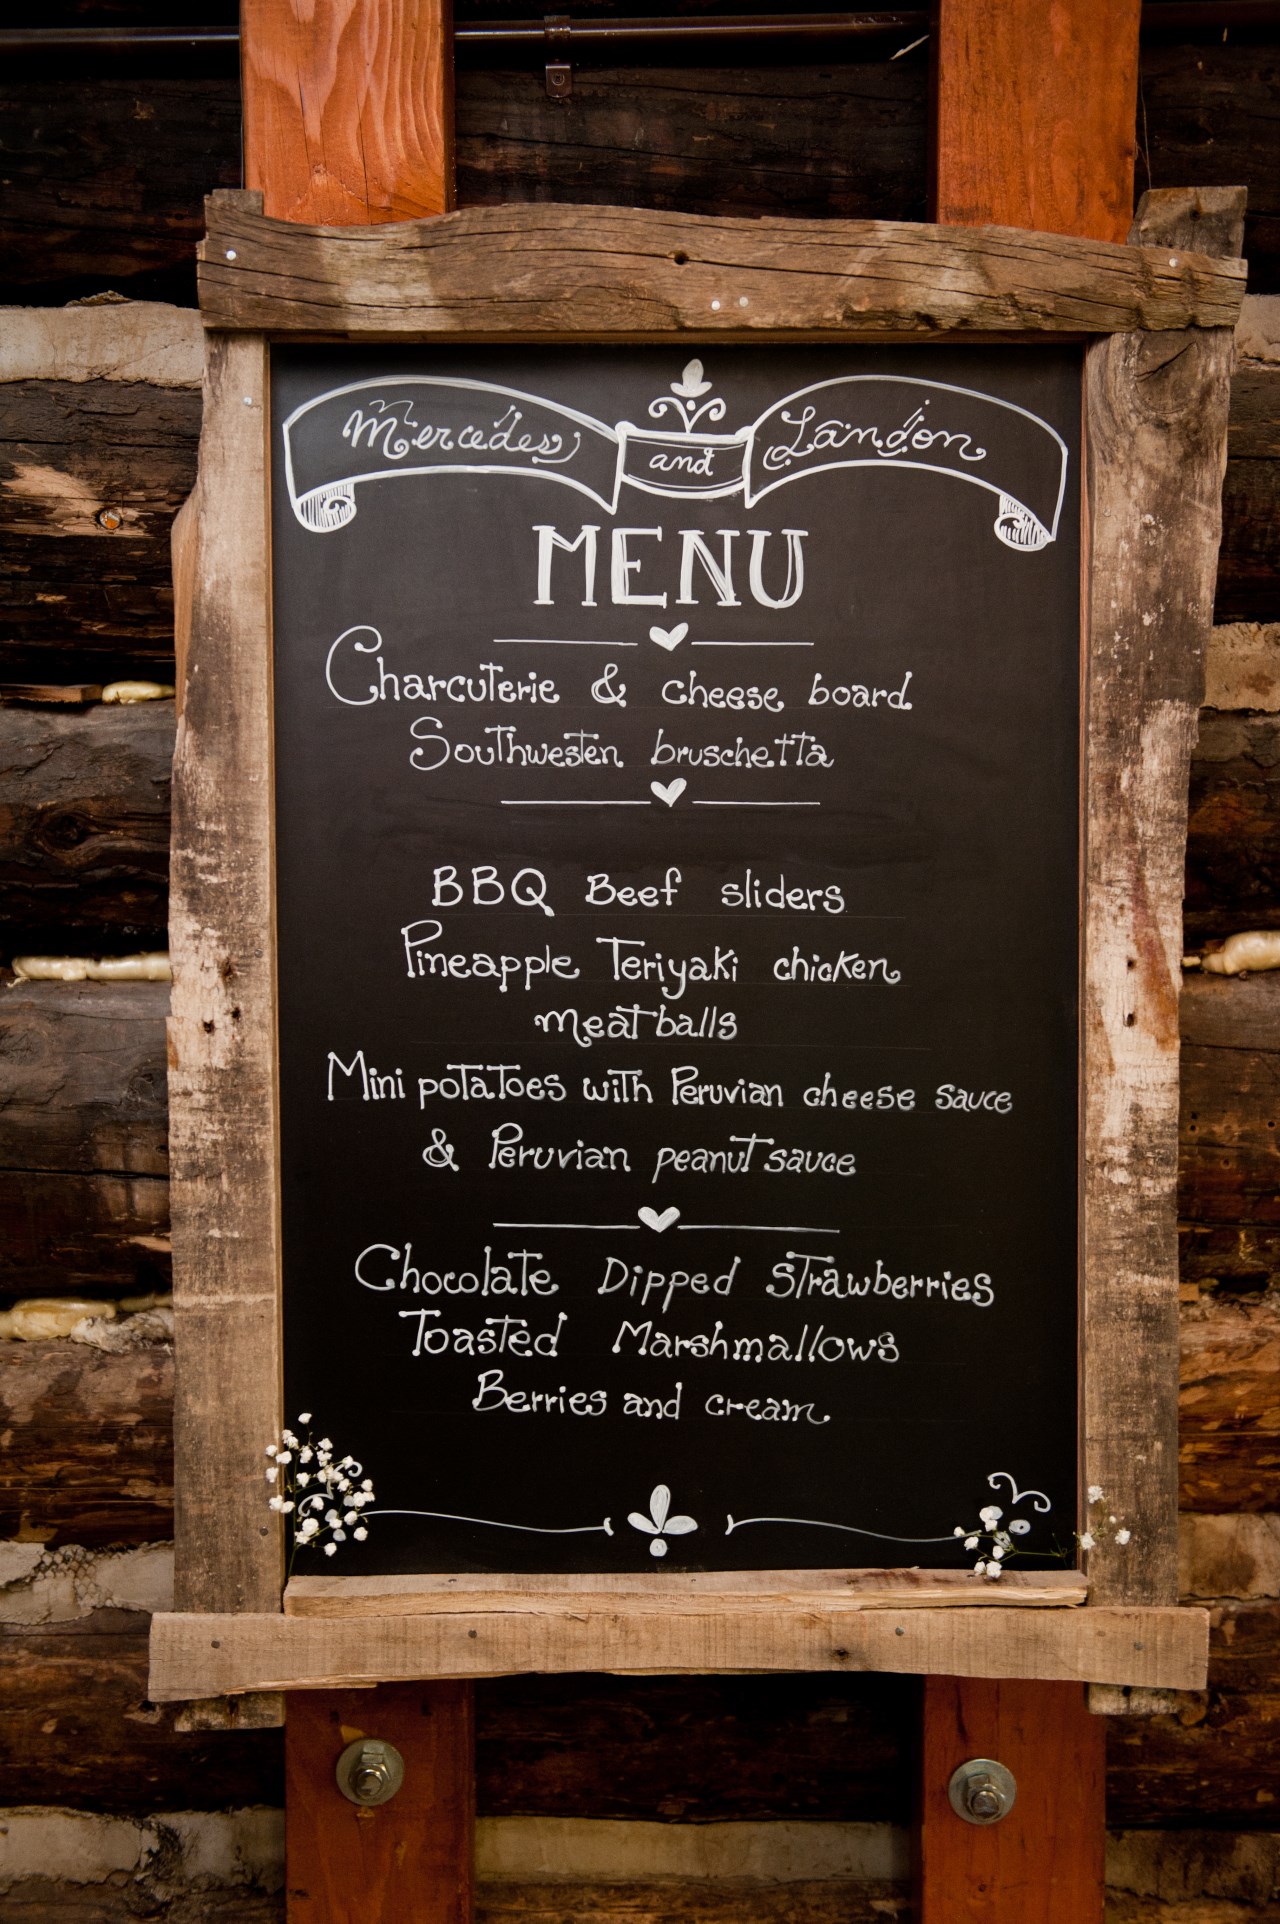 Mercedes and Landon
MENU
Charcuterie & cheese board
Southwesten bruschetta
BBQ Beef sliders
Pineapple Teriyaki chicken
meatballs
Mini potatoes with Peruvian cheese sauce
& Peruvian peanut sauce
Chocolate Dipped Strawberries
Toasted Marshmallows
Berries and cream